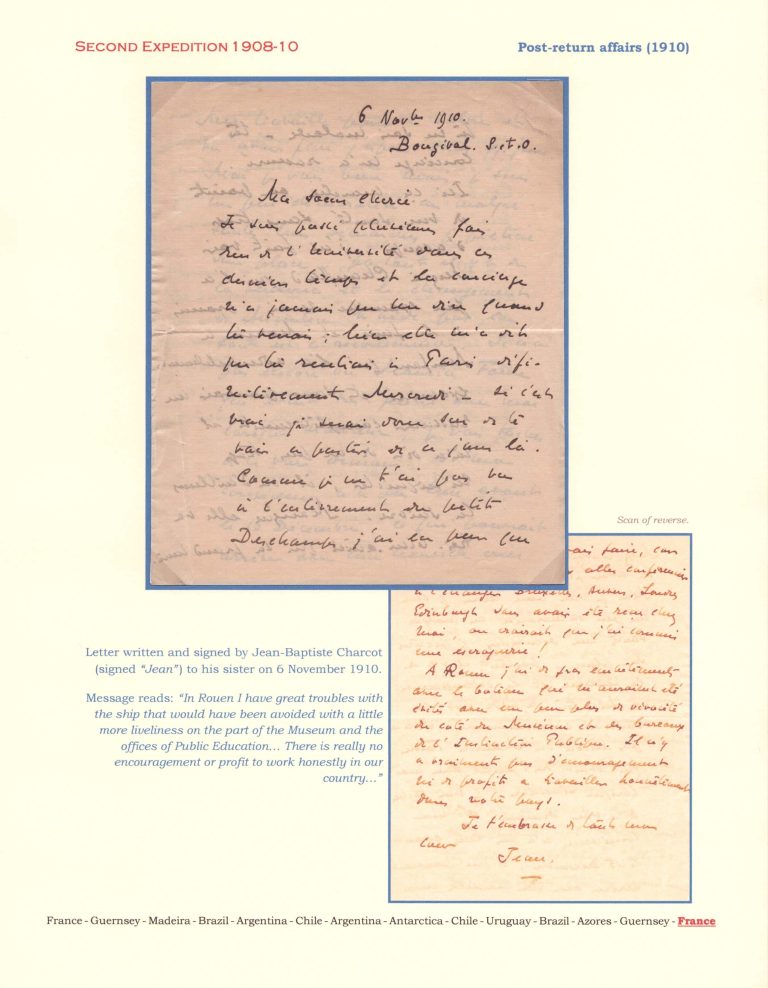 SECOND EXPEDITION 1908-10
Post-return affairs (1910)
6 Novbre 1910.
Bougival. S.et.O.
Ma soeur cherie
Je suis passé plusieurs fois
rue de l'Université dans ces
derniers temps et la concierge
n'a jamais pu me dire quand
tu venais; hier elle m'a dit
que tu rentrais à Paris défi-
nitivement Mercredi - si c'est
vrai je serai donc sur de te
voir a partir de ce jour là.
Comme je ne t'ai pas vu
à l'enterrement du petit
Deschamps j'ai eu peur que
Scan of reverse.
faire, car
aller conférencier
à l'étranger Bruxelles, Anvers, Londres
Edinburgh sans avoir été reçu chez
moi, on croirait que j'ai commis
une escroquerie!
A Rouen j'ai de gros embêtements
avec le bateau qui m'auraient été
évités avec un peu plus de vivacité
du coté du Muséum et des bureaux
de l'Instruction Publique. Il n'y
a vraiment pas d'encouragement
ni de profit a travailler honnêtement
dans notre pays.
Je t'embrasse de tout mon
coeur
Jean.
Letter written and signed by Jean-Baptiste Charcot
(signed "Jean") to his sister on 6 November 1910.
Message reads: "In Rouen I have great troubles with
the ship that would have been avoided with a little
more liveliness on the part of the Museum and the
offices of Public Education... There is really no
encouragement or profit to work honestly in our
country..."
France - Guernsey - Madeira - Brazil - Argentina - Chile - Argentina - Antarctica - Chile - Uruguay - Brazil - Azores - Guernsey - France